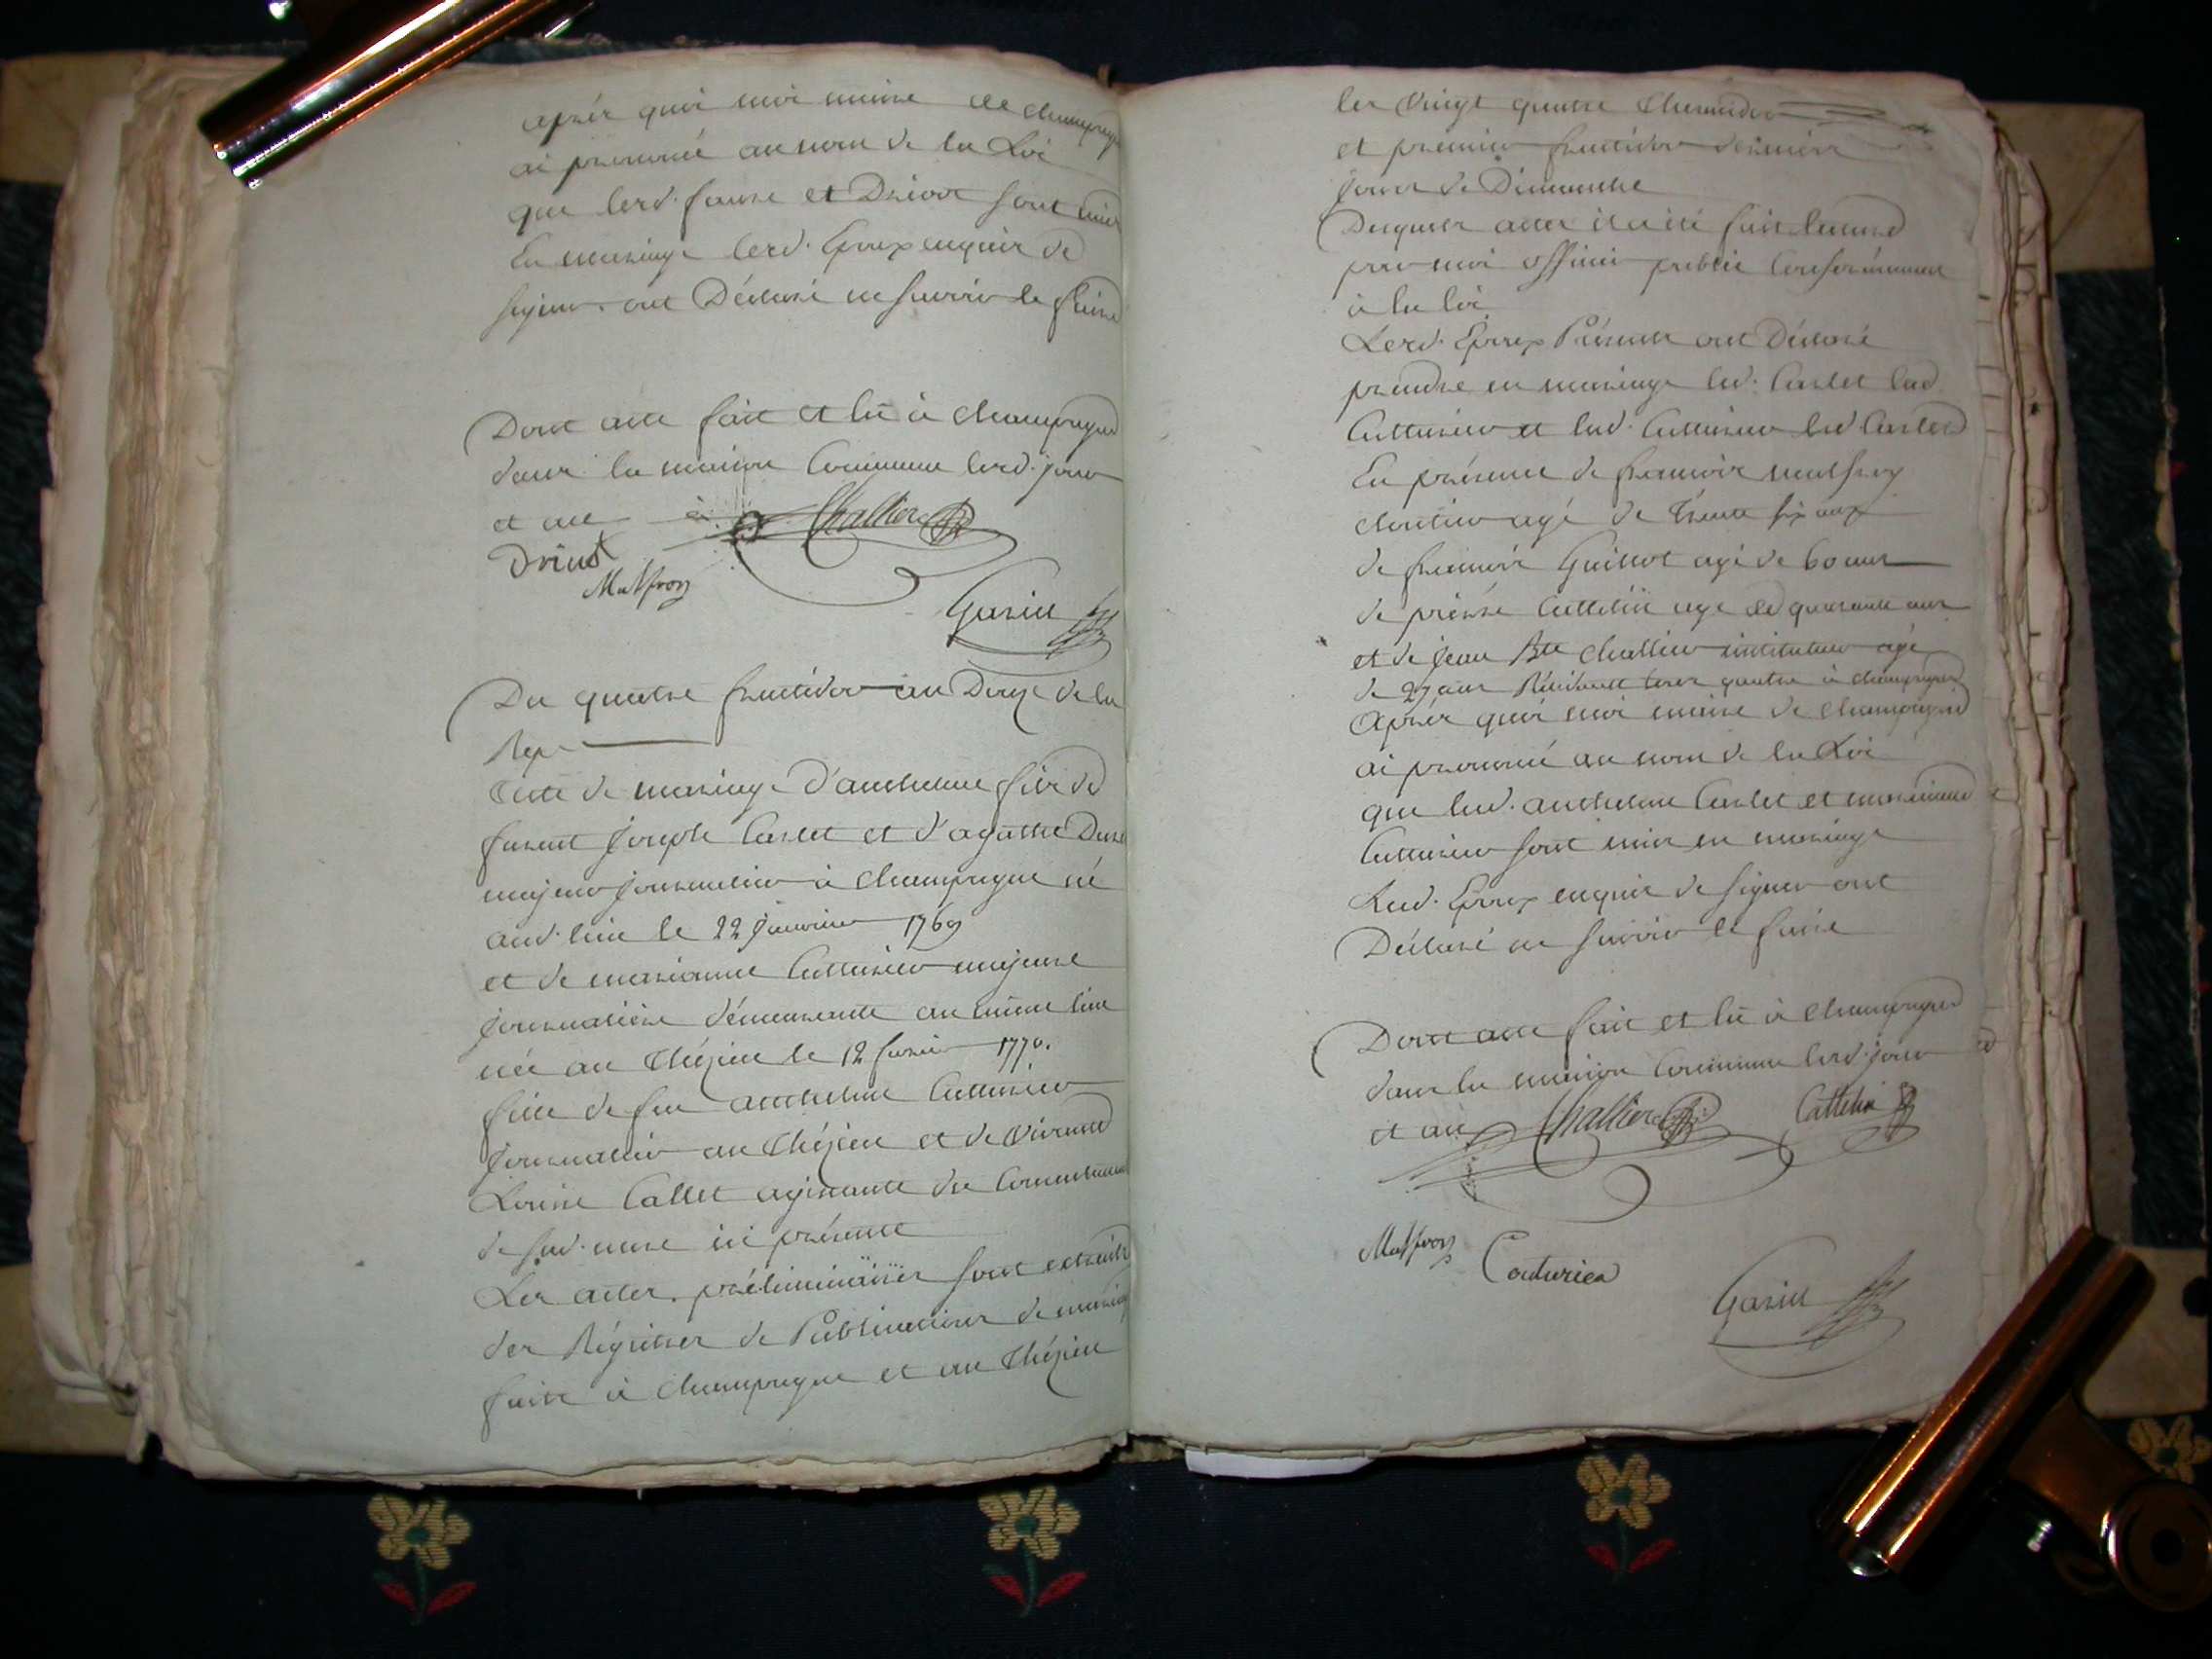 après quoi moi maire de champagne
ai prononcé au nom de la Loi
que lesd. faure et Drivot sont unis
En mariage lesd. Epoux enquis de
signer ont Déclaré ne savoir le faire
Dont acte fait et lû à champagne
dans la maison Commune lesd. jour
et an Challier
Drivot
Malfroy
Garin
Du quatre fructidor an Douze de la
Rep
Acte de mariage D'anthelme fils de
furent Joseph Carlet et d'agathe
majeur journalier à Champagne né
aud. lieu le 22 janvier 1769
et de marianne Cutturier majeure
journalière démeurante au même lieu
née au Chézieu le 12 fevrier 1770.
fille de feu anthelme Cutturier
Journalier au Chézieu et de vivante
Louise Callet agissante du Consentement
de sad. mere ici présente
Les actes préliminaires sont extraits
des Régistres de Publications de mariage
faite à Champagne et au Chézieu
les vingt quatre thermidor
et premier fructidor derniers
jours de Dimanche
Desquels actes il a été fait lecture
par moi officier public Conformément
à la loi
Lesd. Epoux Présents ont Déclaré
prendre en mariage led. Carlet lad.
Cutturier et lad. Cutturier led. Carlet
En présence de francois malfroy
cloutier agé de trente six ans
de francois Guillot agé de 60 ans
de pierre Cattelin agé de quarante ans
et de jean Bte Challier instituteur agé
de 27 ans Résidants tous quatre à champagne
Après quoi moi maire de Champagne
ai prononcé au nom de la Loi
que led. anthelme Carlet et marianne
Cutturier sont unis en mariage
Lesd. Epoux enquis de signer ont
Déclaré ne savoir le faire
Dont acte fait et lû à champagne
dans la maison Commune lesd. jour
et an Challier Cattelin
Malfroy Couturier
Garin